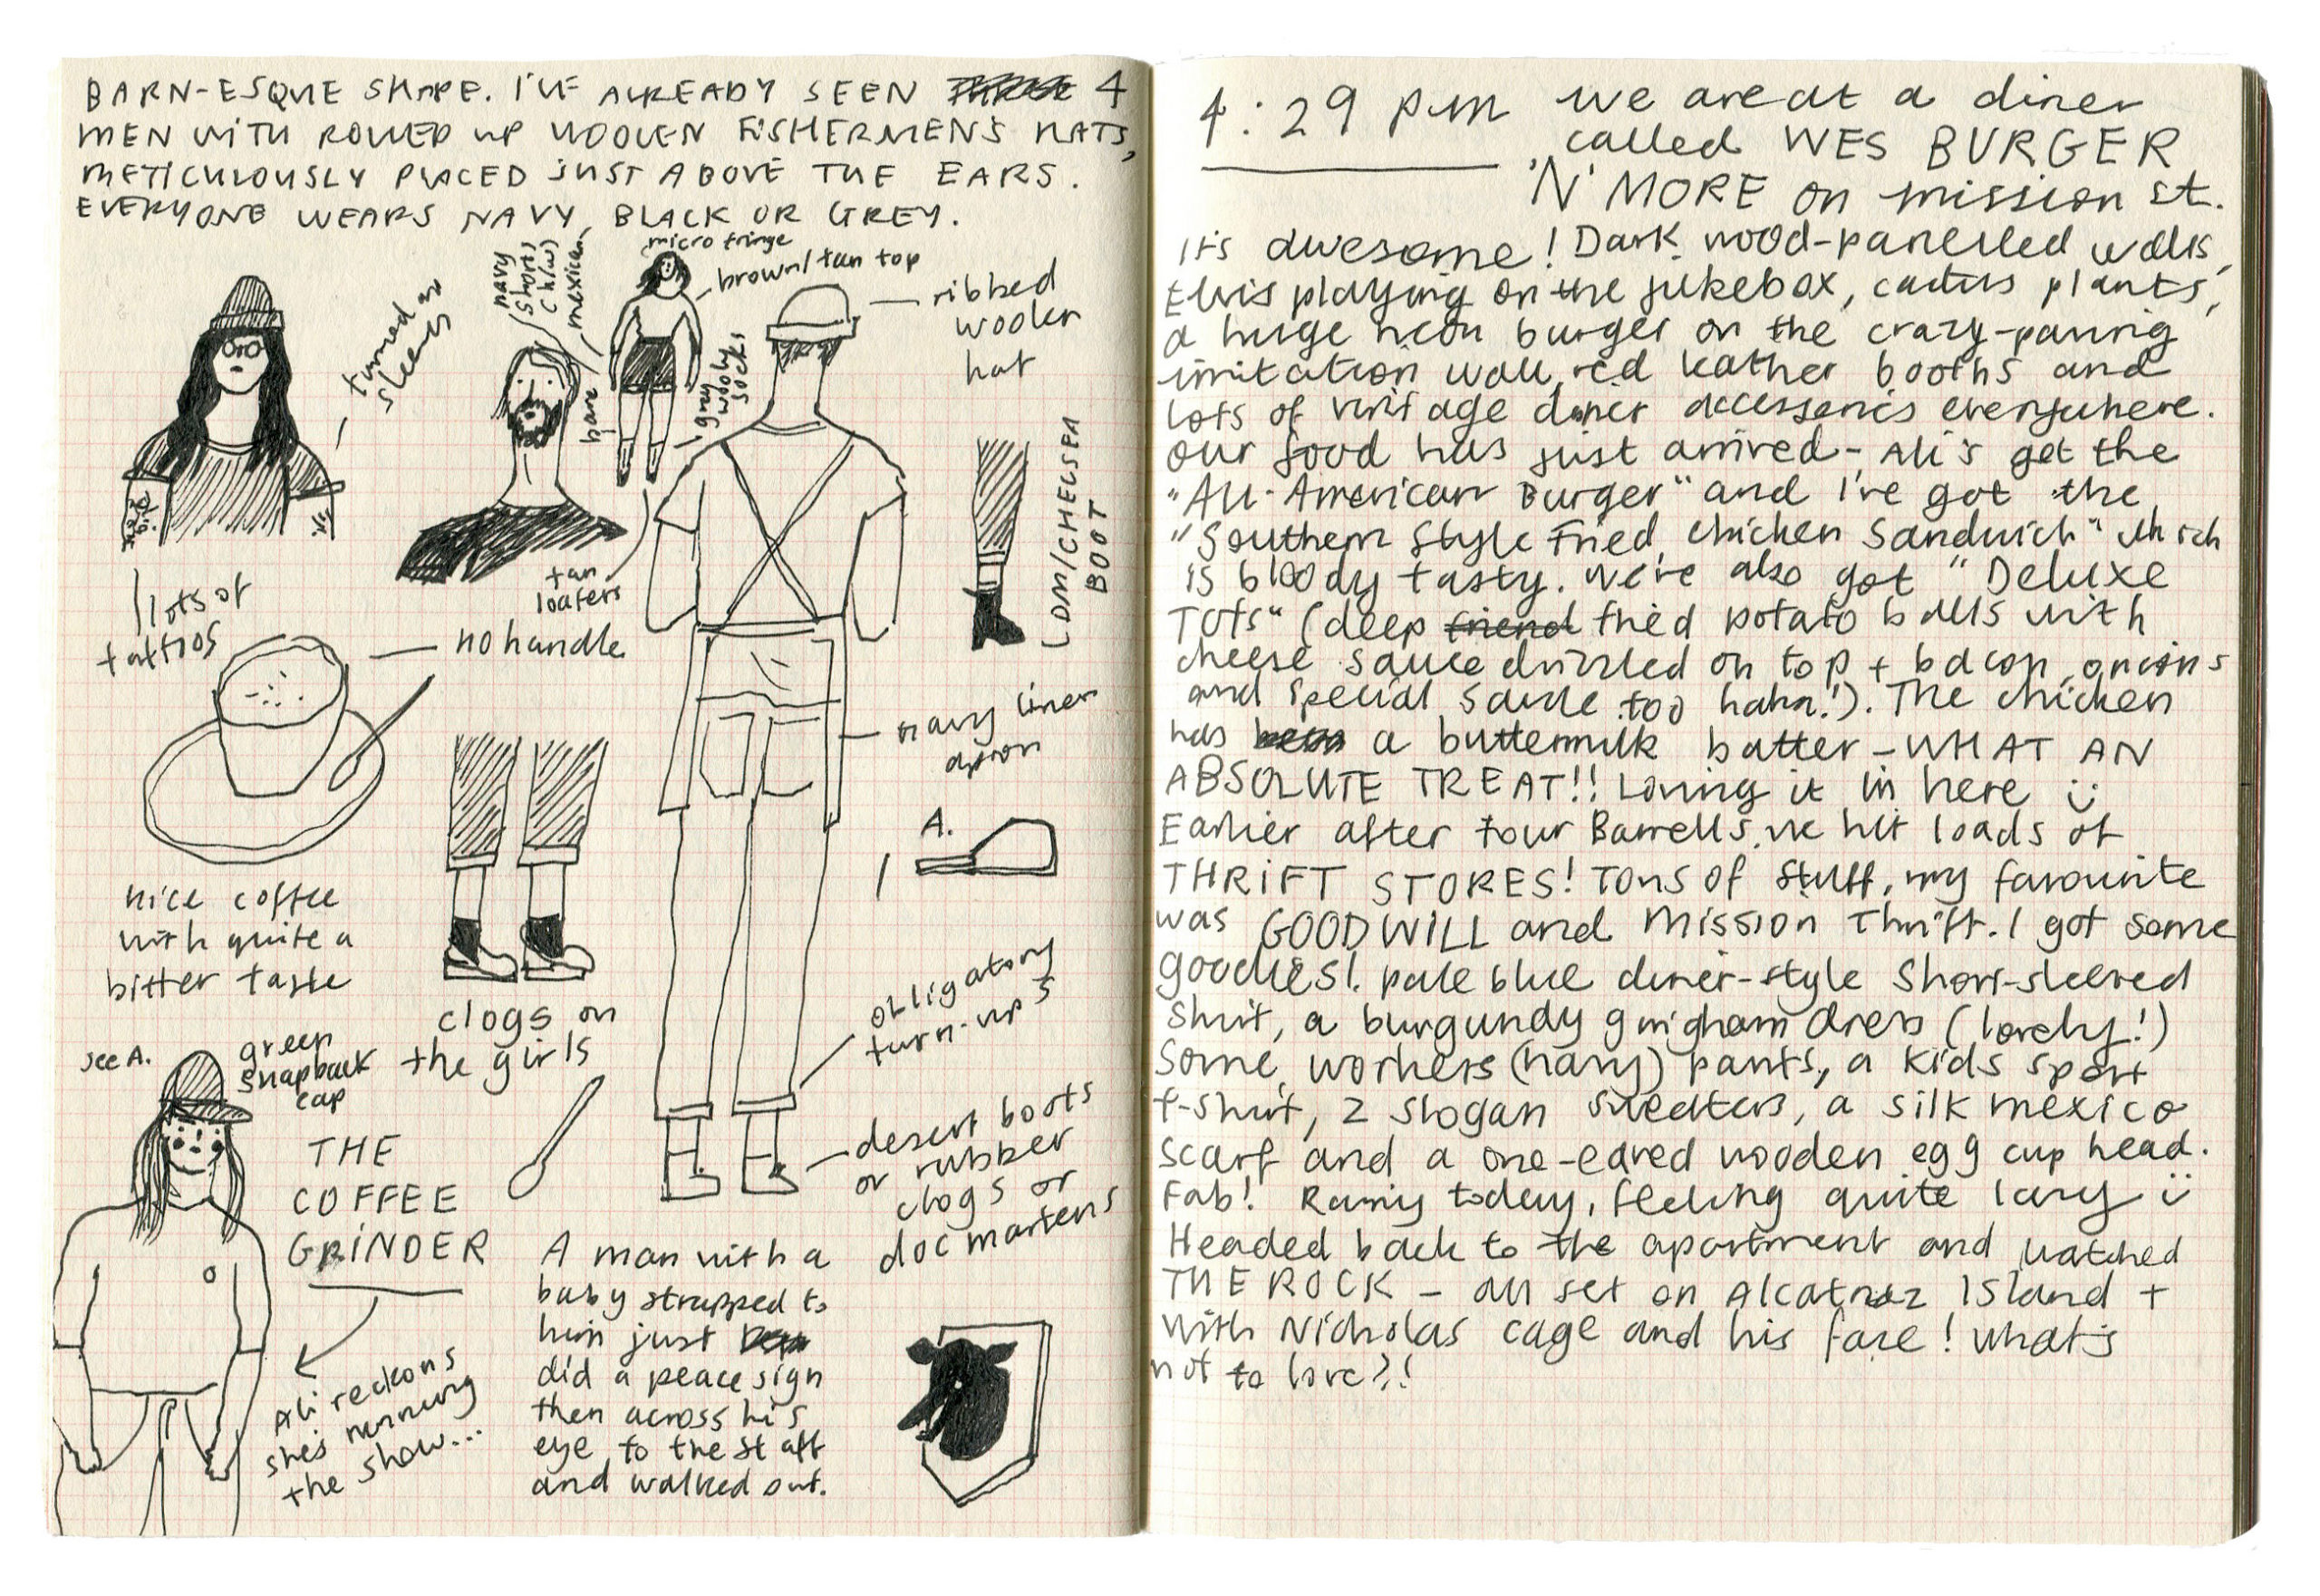 BARN-ESQUE SHAPE. I'VE ALREADY SEEN 4
MEN WITH ROLLED UP WOOLEN FISHERMEN'S HATS,
METICULOUSLY PLACED JUST ABOVE THE EARS.
EVERYONE WEARS NAVY, BLACK OR GREY.
turned up
sleeves
navy
shorts
(h/w)
mexican
micro fringe
brown/tan top
bare
grey
wooly
socks
ribbed
woolen
hat
lots of
tattoos
tan
loafers
(DM/CHELSEA
BOOT
no handle
navy linen
apron
A.
nice coffee
with quite a
bitter taste
clogs on
the girls
obligatory
turn-ups
desert boots
or rubber
clogs or
doc martens
see A.
green
snapback
cap
THE
COFFEE
GRINDER
Ali reckons
she's running
the show...
A man with a
baby strapped to
him just
did a peace sign
then across his
eye to the staff
and walked out.
4:29 pm
we are at a diner
called WES BURGER
'N' MORE on mission st.
It's awesome! Dark wood-panelled walls,
Elvis playing on the jukebox, cactus plants,
a huge neon burger on the crazy-paving
imitation wall, red leather booths and
lots of vintage diner accessories everywhere.
our food has just arrived - Ali's got the
"All-American Burger" and I've got the
"Southern Style Fried Chicken Sandwich" which
is bloody tasty. We've also got "Deluxe
TOTS" (deep friend fried potato balls with
cheese sauce drizzled on top + bacon, onions
and special sauce too haha!). The chicken
has a buttermilk batter - WHAT AN
ABSOLUTE TREAT!! Loving it in here :)
Earlier after Four Barrells, we hit loads of
THRIFT STORES! Tons of stuff, my favourite
was GOODWILL and Mission Thrift. I got some
goodies! pale blue diner-style short-sleeved
shirt, a burgundy gingham dress (lovely!)
some workers (navy) pants, a kids sport
t-shirt, 2 slogan sweaters, a silk mexico
scarf and a one-eared wooden egg cup head.
Fab! Rainy today, feeling quite lazy :)
Headed back to the apartment and watched
THE ROCK - all set on Alcatraz Island +
with Nicholas cage and his face! what's
not to love?!